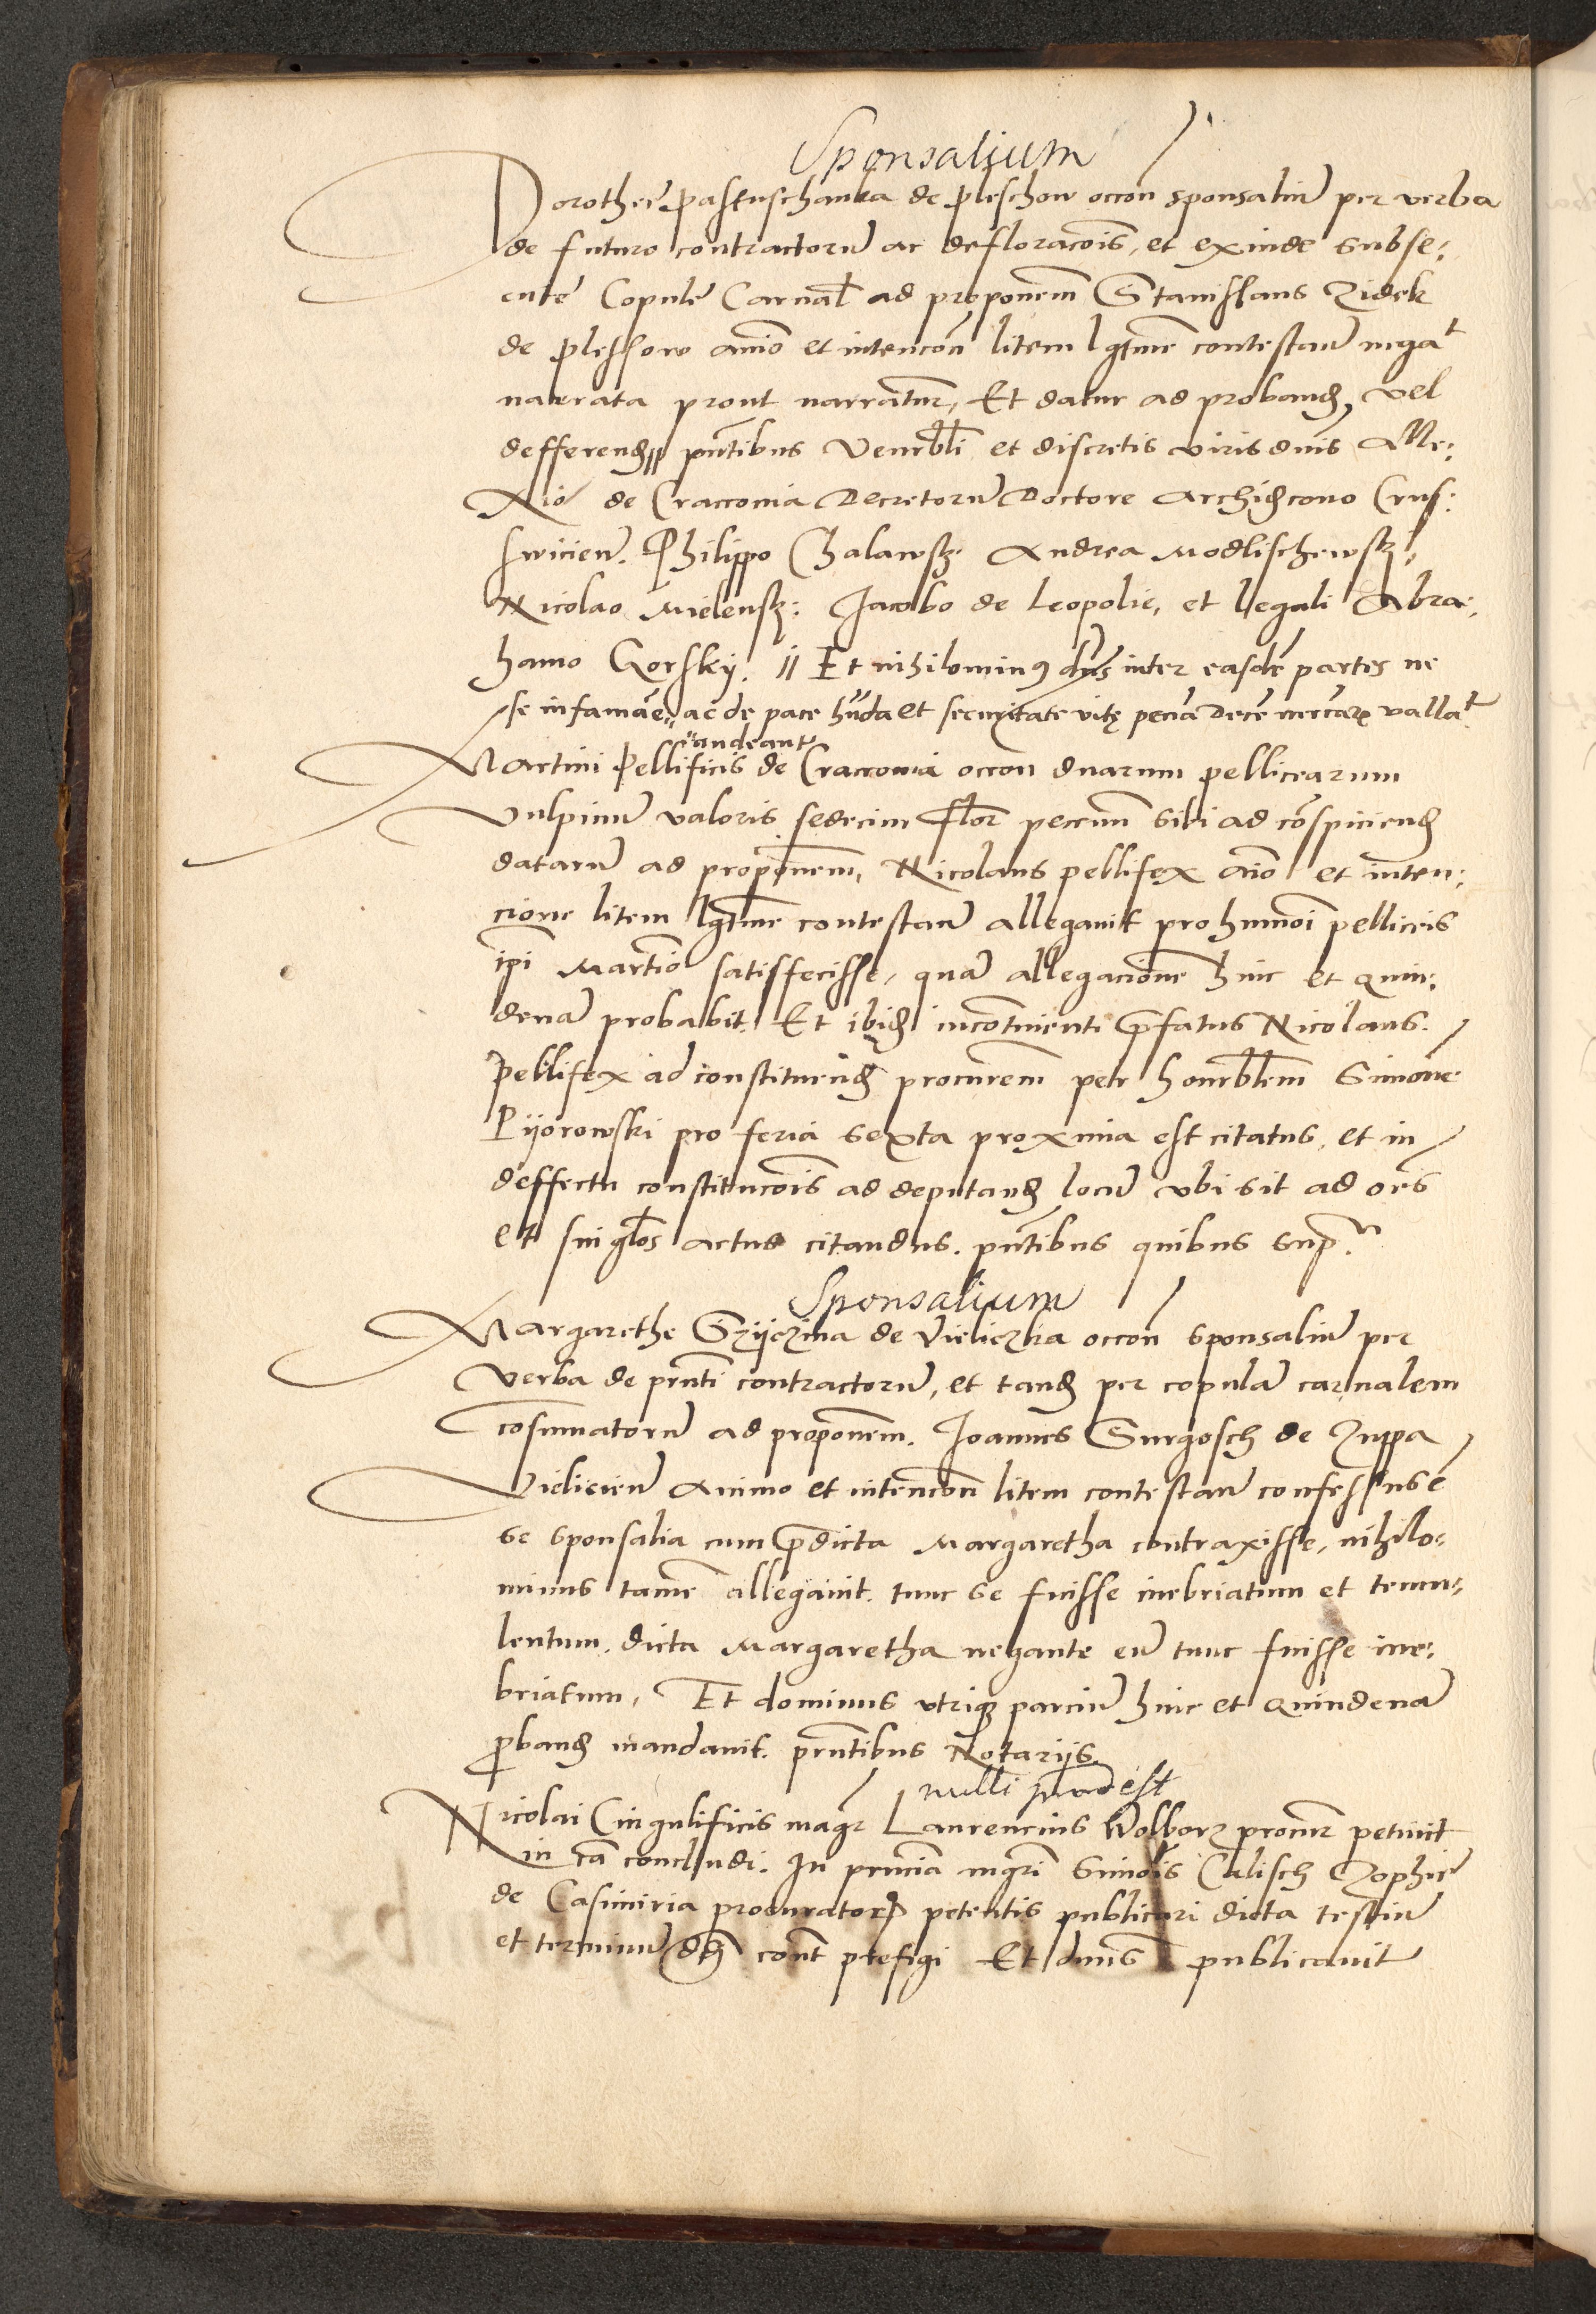 Sponsalium
Dorothee Pastuschanka de Pleschow occon̄ sponsaliū per verba
de futuro contractorū ac defloracōis, et exinde subse:
cute Copule Carnal̄ ad propōnem Stanislaus Zidek
de Plessow aīo et intencōn litem lgt̄ime contestan̄ negat
narrata prout narrant̄ur, Et datur ad proband̄, vel
defferend̄ // pn̄tibus Venerbl̄i et discretis viris dn̄is Ale:
xio de Cracconia Decretorū Doctore Archid̄cono Crus:
swicien̄. Philippo Chalawsk. Andrea Modlischewsk,
Nicolao Mielensk: Jacobo de Leopolie, et legali Abra:
hamo Gorskij. // Et nihilominus dn̄s inter easdē partes ne
se infamāe // ac de pace hn̄da et securitate vitę pena Decē mrcar̄ vallat
audeant
Martini Pellificis de Cracconia occon̄ duarum pellicearum
Vulpinū valoris sedecim Flor̄ peccun̄ sibi ad cōspiciend̄
datarū ad propōnem, Nicolaus pellifex aīo et inten:
cione litem lgt̄ime contestan̄ allegauit pro hm̄oi pelliceis
ip̄i Martīo satisfecisse, quā allegacione hinc et quin:
denā probabit. Et ibid̄ incontinenti p̄fatus Nicolaus.
Pellifex ad constituend̄ procurem̄ petr̄ honrblem Simone
Pijorowski pro feria sexta proxima est citatus, et in
deffectu constitucōis ad deputand̄ locū vbi sit ad oēs
et singl̄os actus citandus. pn̄tibus quibus sup.ᵃ
Sponsalium
Margarethe Szijczina de Vieliczka occon̄ sponsaliū per
Verba de prn̄ti contractorū, et tand̄ per copulā carnalem
cosumatorū ad propōnem. Joannes Gurgosch de Zuppa
Vieliciēn animo et intencōn litem contestan̄ confessus ē
se sponsalia cum p̄dicta Margaretha contraxisse, nihilo:
minus tamē allegauit. tunc se fuisse inebriatum et temu:
lentum. dicta Margaretha negante eū tunc fuisse ine:
briatum, Et dominus vtriq̄ parciū hinc et quindenā
ꝓband̄ mandauit. prn̄tibus Notarijs.
nulli prodest
Nicolai Cingulificis magr̄ Laurencius Wolborz procur̄ petiuit
in cā concludi. In prn̄cia mgr̄i Simōis Calisch Zophie
de Casimiria procurator̄ petentis publicari dicta testiū
et terminū cont̄ prefigi Et dn̄us publicauit